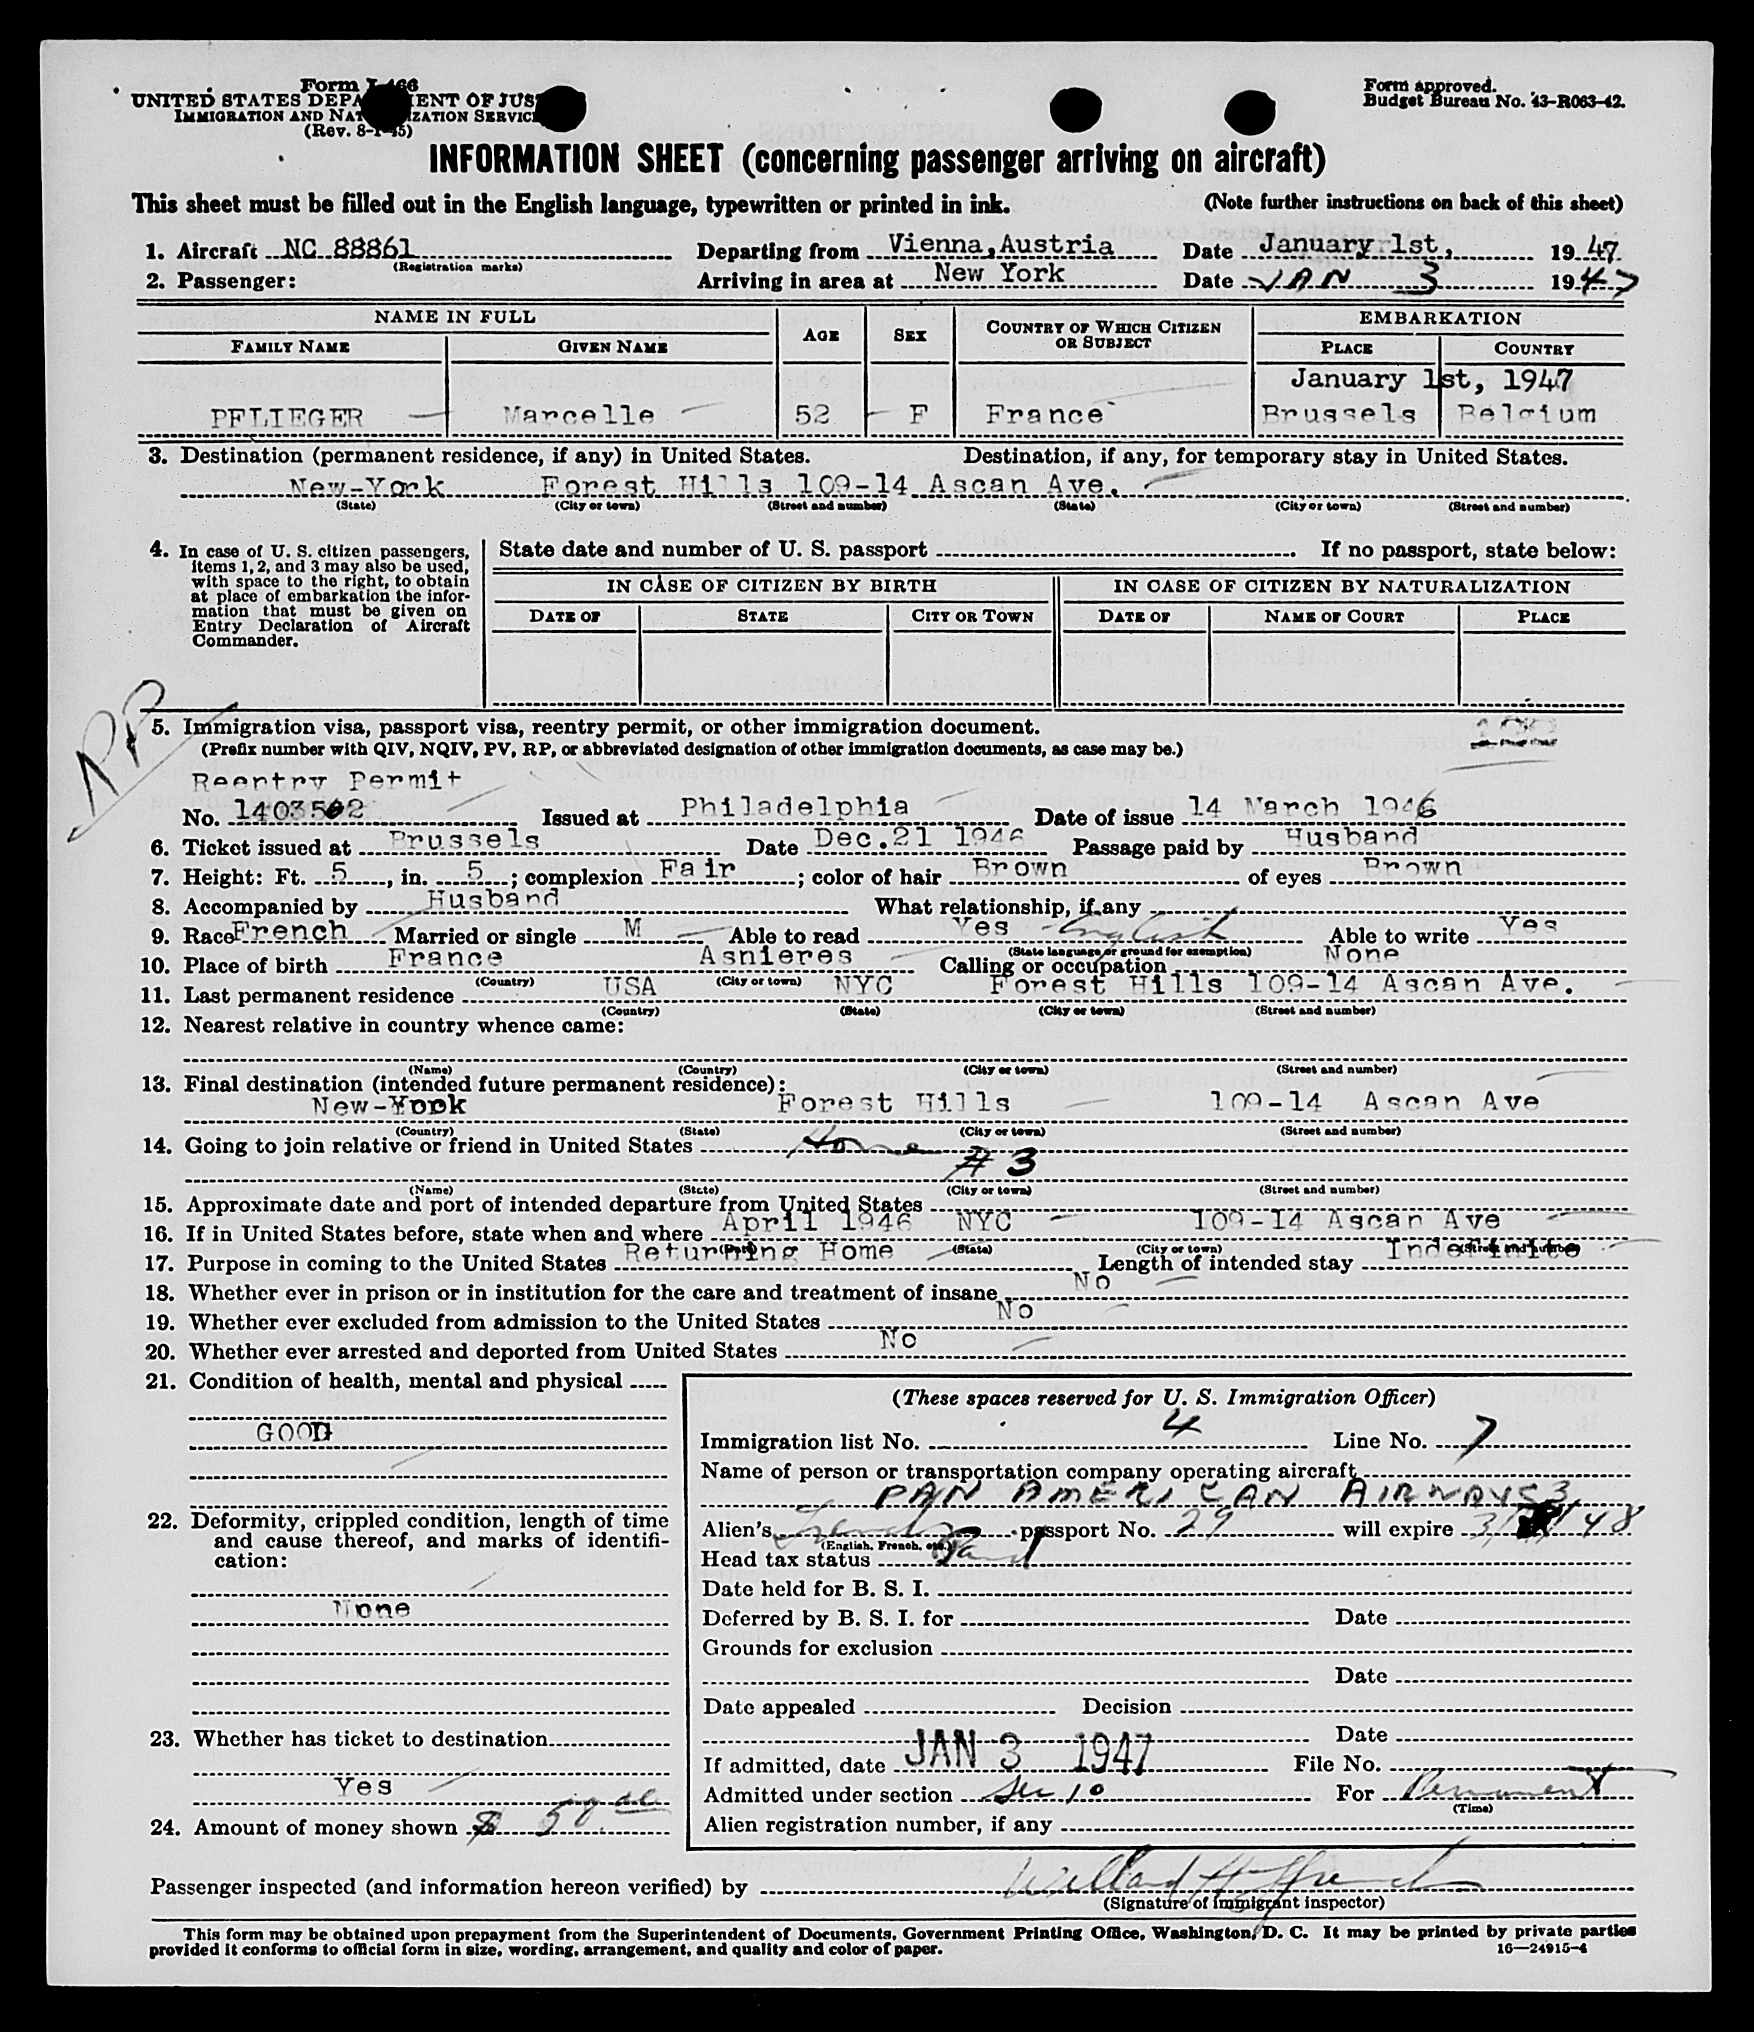 Form I-466
UNITED STATES DEPARTMENT OF JUSTICE
IMMIGRATION AND NATURALIZATION SERVICE
(Rev. 8-1-45)
Form approved.
Budget Bureau No. 43-R063-42.
INFORMATION SHEET (concerning passenger arriving on aircraft)
This sheet must be filled out in the English language, typewritten or printed in ink. (Note further instructions on back of this sheet)
1. Aircraft NC 88861 Departing from Vienna, Austria Date January 1st, 1947
(Registration marks)
2. Passenger: Arriving in area at New York Date JAN 3 1947
NAME IN FULL AGE SEX COUNTRY OF WHICH CITIZEN OR SUBJECT EMBARKATION
FAMILY NAME GIVEN NAME PLACE COUNTRY
January 1st, 1947
PFLIEGER Marcelle 52 F France Brussels Belgium
3. Destination (permanent residence, if any) in United States. Destination, if any, for temporary stay in United States.
New-York Forest Hills 109-14 Ascan Ave.
(State) (City or town) (Street and number) (State) (City or town) (Street and number)
4. In case of U. S. citizen passengers, items 1, 2, and 3 may also be used, with space to the right, to obtain at place of embarkation the information that must be given on Entry Declaration of Aircraft Commander.
State date and number of U. S. passport . If no passport, state below:
IN CASE OF CITIZEN BY BIRTH IN CASE OF CITIZEN BY NATURALIZATION
DATE OF STATE CITY OR TOWN DATE OF NAME OF COURT PLACE
RP
5. Immigration visa, passport visa, reentry permit, or other immigration document.
(Prefix number with QIV, NQIV, PV, RP, or abbreviated designation of other immigration documents, as case may be.)
Reentry Permit
No. 1403502 Issued at Philadelphia Date of issue 14 March 1946
6. Ticket issued at Brussels Date Dec.21 1946 Passage paid by Husband
7. Height: Ft. 5, in. 5; complexion Fair; color of hair Brown of eyes Brown
8. Accompanied by Husband What relationship, if any
9. Race French Married or single M Able to read Yes English Able to write Yes
(State language or ground for exemption)
10. Place of birth France Asnieres Calling or occupation None
(Country) (City or town)
11. Last permanent residence USA NYC Forest Hills 109-14 Ascan Ave.
(Country) (State) (City or town) (Street and number)
12. Nearest relative in country whence came:
(Name) (Country) (City or town) (Street and number)
13. Final destination (intended future permanent residence):
New-York Forest Hills 109-14 Ascan Ave
(Country) (State) (City or town) (Street and number)
14. Going to join relative or friend in United States Home
# 3
(Name) (State) (City or town) (Street and number)
15. Approximate date and port of intended departure from United States
16. If in United States before, state when and where April 1946 NYC 109-14 Ascan Ave
(State) (City or town) (Street and number)
17. Purpose in coming to the United States Returning Home Length of intended stay Indefinite
18. Whether ever in prison or in institution for the care and treatment of insane No
19. Whether ever excluded from admission to the United States No
20. Whether ever arrested and deported from United States No
21. Condition of health, mental and physical
GOOD
22. Deformity, crippled condition, length of time and cause thereof, and marks of identification:
None
23. Whether has ticket to destination
Yes
24. Amount of money shown $ 50.00
(These spaces reserved for U. S. Immigration Officer)
Immigration list No. 4 Line No. 7
Name of person or transportation company operating aircraft
PAN AMERICAN AIRWAYS
Alien's French passport No. 29 will expire
(English, French, etc.)
Head tax status Paid
Date held for B. S. I.
Deferred by B. S. I. for Date
Grounds for exclusion
Date
Date appealed Decision
Date
If admitted, date JAN 3 1947 File No.
Admitted under section Sec 10 For Permanent
(Time)
Alien registration number, if any
Passenger inspected (and information hereon verified) by Willard H French
(Signature of immigrant inspector)
This form may be obtained upon prepayment from the Superintendent of Documents, Government Printing Office, Washington, D. C. It may be printed by private parties
provided it conforms to official form in size, wording, arrangement, and quality and color of paper. 16—24915-4